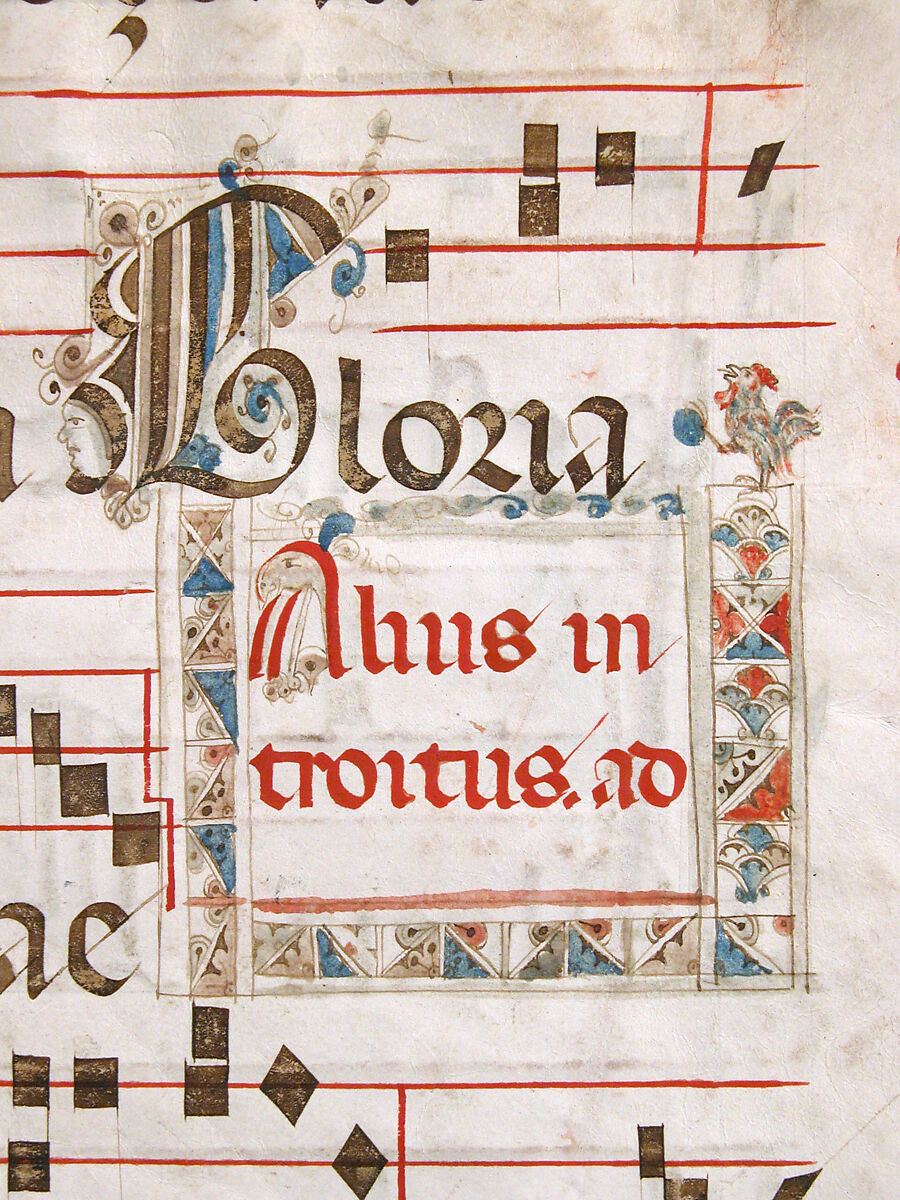 Gloria
Alius in
troitus. ad
ne